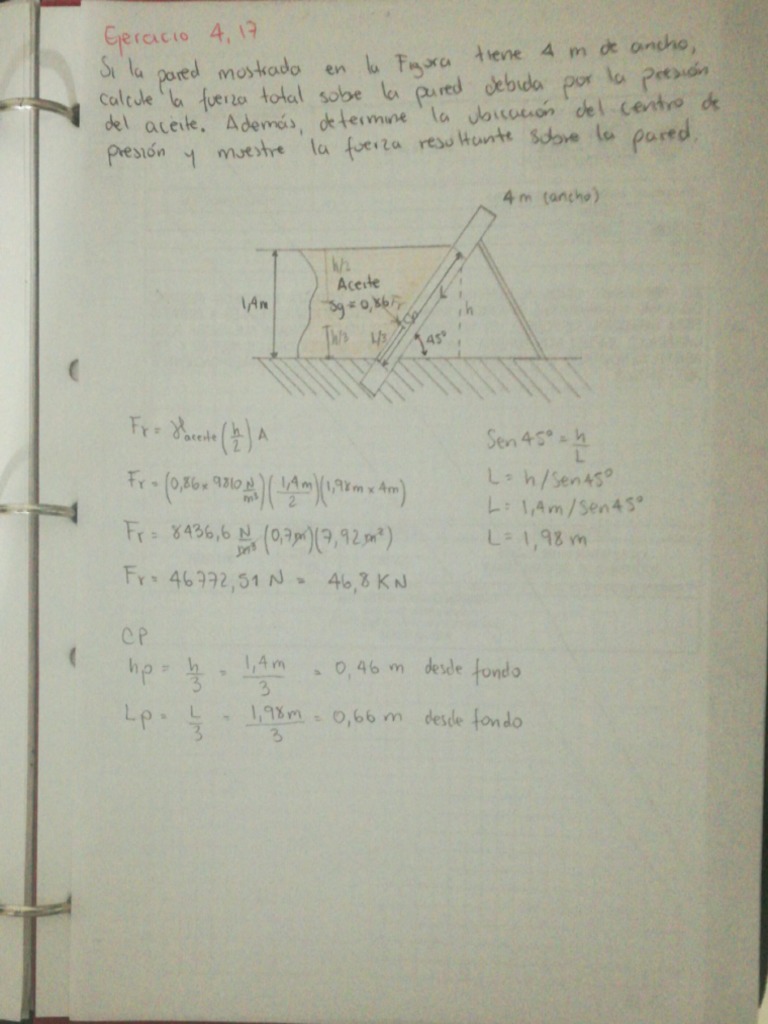 Ejercicio 4,17
Si la pared mostrada en la Figura tiene 4 m de ancho,
calcule la fuerza total sobe la pared debida por la presión
del aceite. Además, determine la ubicación del centro de
presión y muestre la fuerza resultante sobre la pared.
4 m (ancho)
h/2
Aceite
1,4m
sg = 0,86 Fr
Cp
L
h
h/3
L/3
45°
Fr = γaceite (h/2) A
Sen 45° = h/L
Fr = (0,86 × 9810 N/m³) (1,4m/2) (1,98m × 4m)
L = h/sen45°
L = 1,4m/sen45°
Fr = 8436,6 N/m³ (0,7m)(7,92m²)
L = 1,98 m
Fr = 46772,51 N = 46,8 KN
CP
hp = h/3 = 1,4m/3 = 0,46 m desde fondo
Lp = L/3 = 1,98m/3 = 0,66 m desde fondo